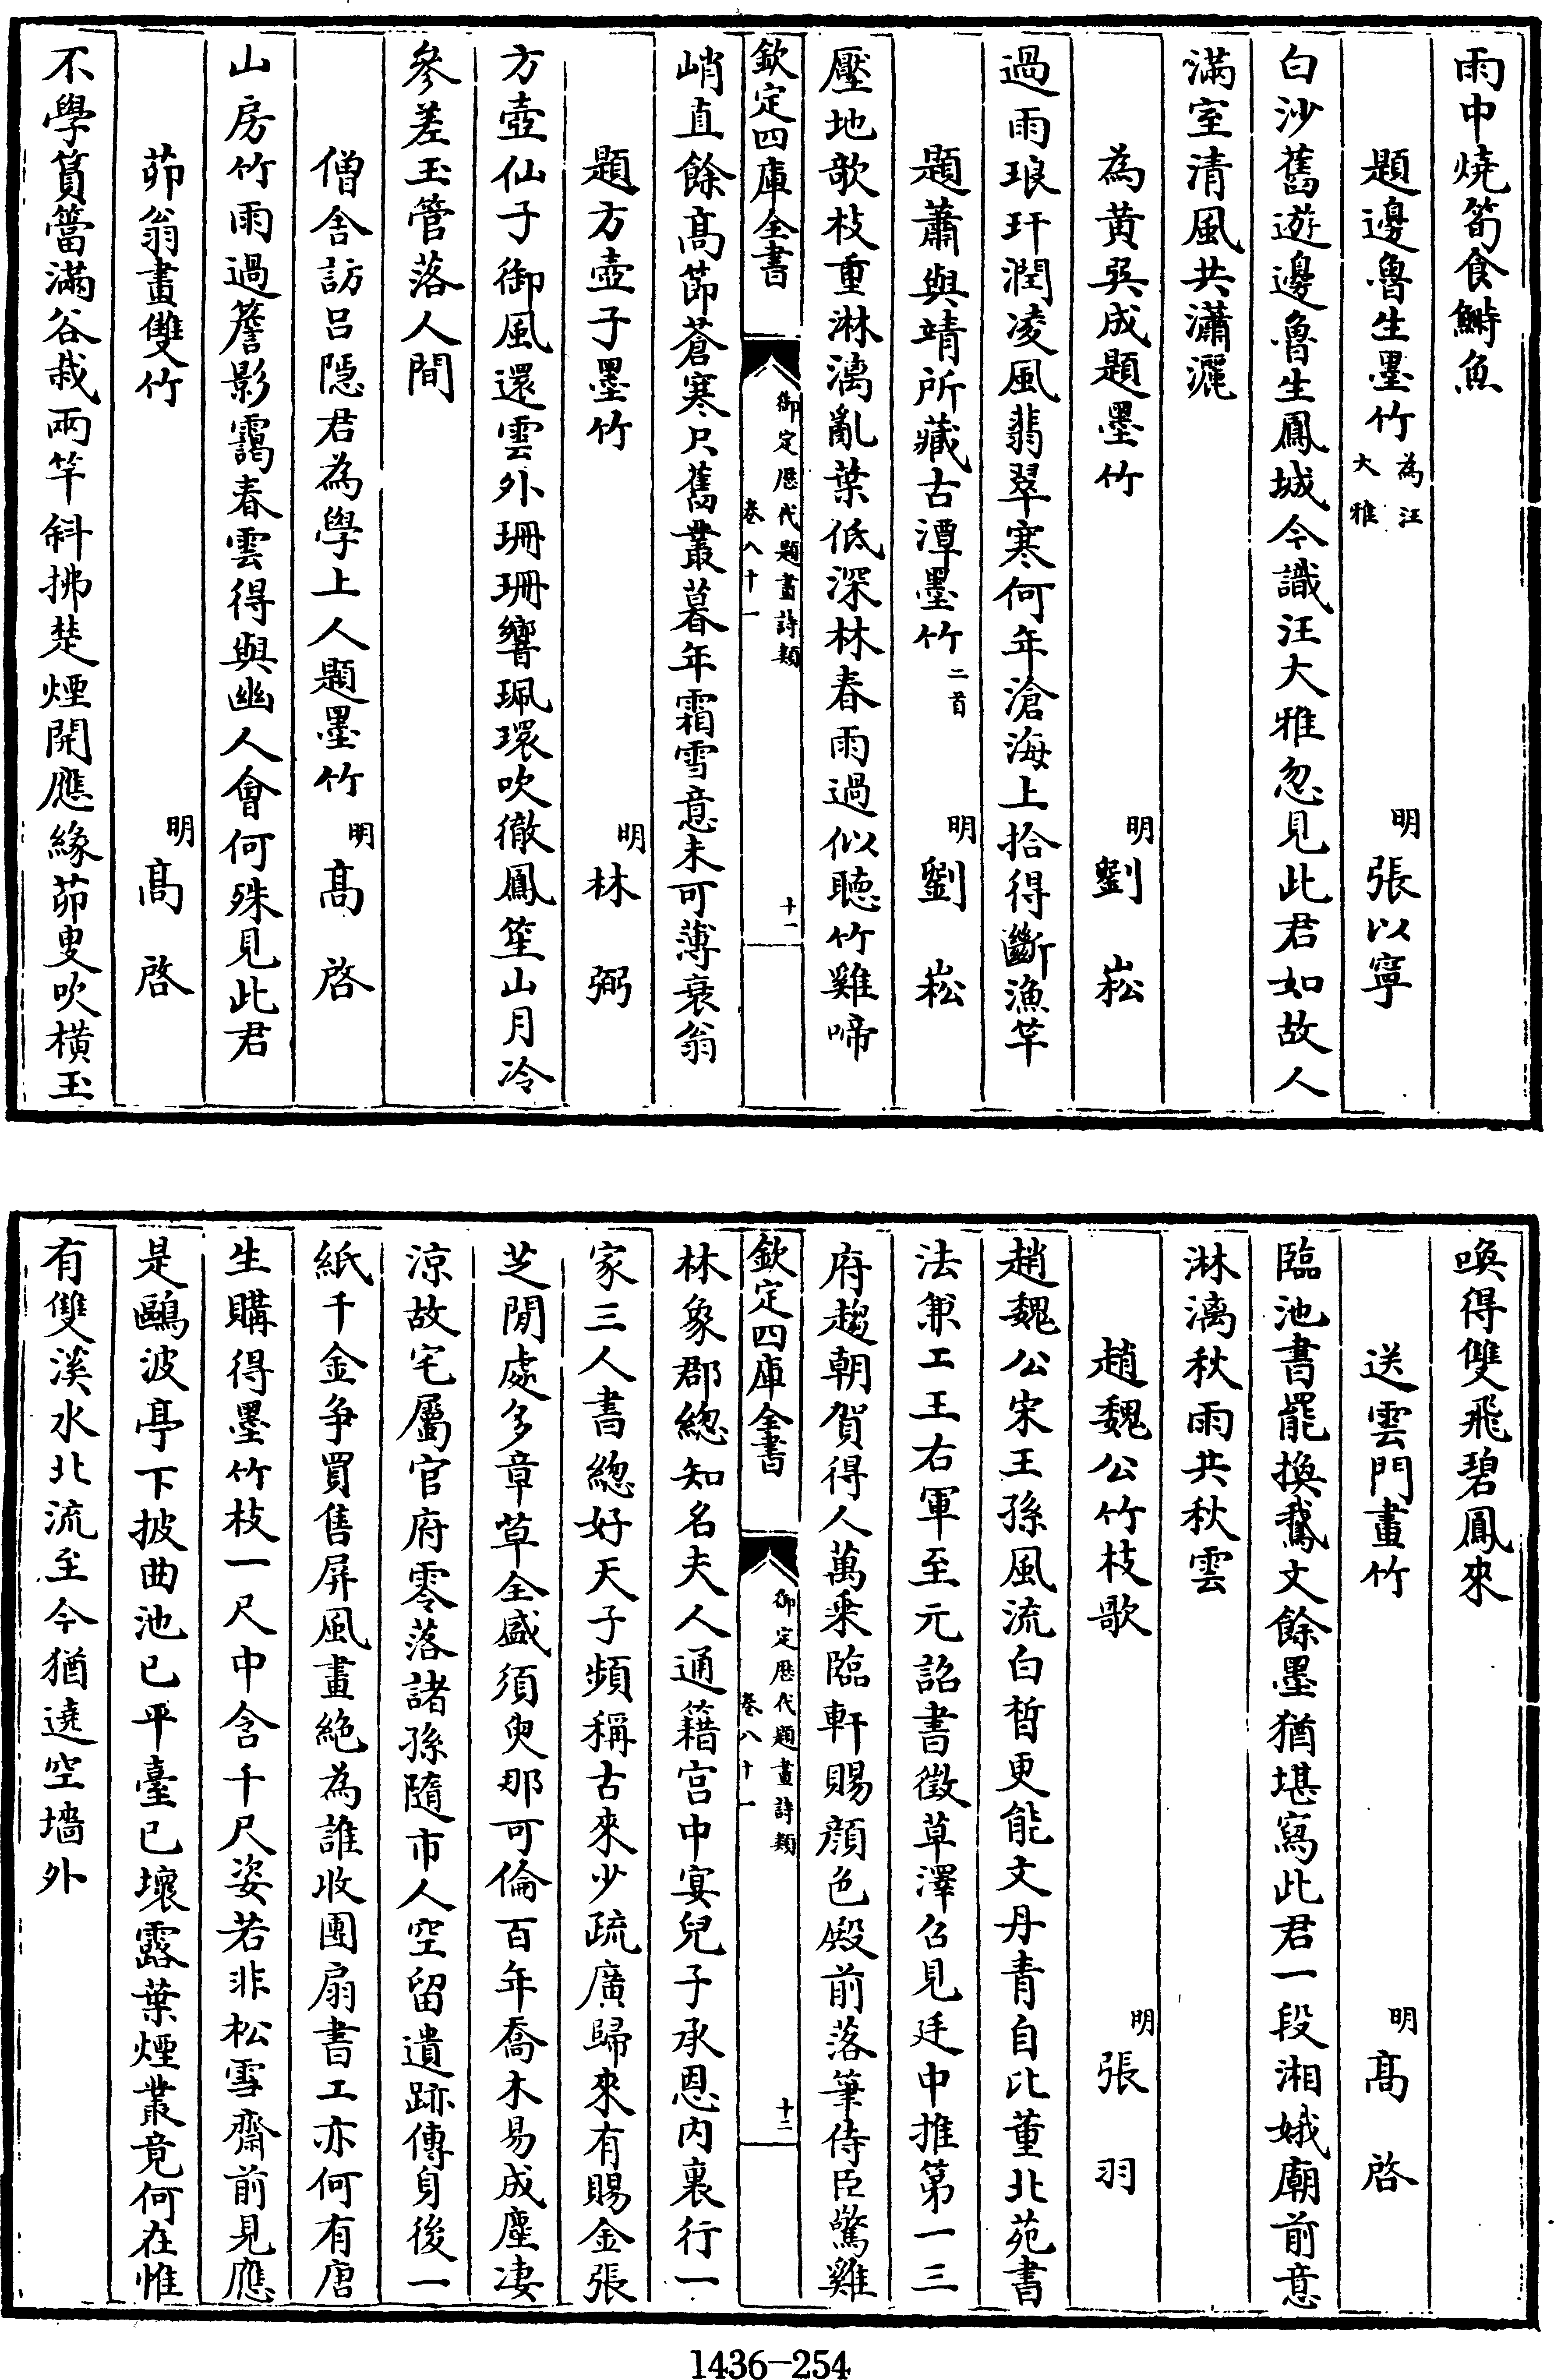 雨中燒筍食鰣魚
題邊魯生墨竹為汪大雅 明張以寧
白沙舊遊邊魯生鳳城今識汪大雅忽見此君如故人
滿室清風共瀟灑
為黄吳成題墨竹 明劉崧
過雨琅玕潤凌風翡翠寒何年滄海上拾得斷漁竿
題蕭與靖所藏古潭墨竹二首 明劉崧
壓地欹枝重淋漓亂葉低深林春雨過似聴竹雞啼
欽定四庫全書 御定歴代題畫詩類卷八十一 十一
峭直餘高節蒼寒只舊叢暮年霜雪意未可薄衰翁
題方壺子墨竹 明林弼
方壺仙子御風還雲外珊珊響珮環吹徹鳳笙山月冷
參差玉管落人間
僧舍訪吕隠君為學上人題墨竹 明髙啓
山房竹雨過簷影靄春雲得與幽人會何殊見此君
茆翁畫雙竹 明髙啓
不學篔簹滿谷栽兩竿斜拂楚煙開應緣茆叟吹横玉
喚得雙飛碧鳳來
送雲門畫竹 明髙啓
臨池書罷換鵞文餘墨猶堪寫此君一段湘娥廟前意
淋漓秋雨共秋雲
趙魏公竹枝歌 明張羽
趙魏公宋王孫風流白晳更能文丹青自比董北苑書
法兼工王右軍至元詔書徵草澤召見廷中推第一三
府趨朝賀得人萬乘臨軒賜顔色殿前落筆侍臣驚雞
欽定四庫全書 御定歴代題畫詩類卷八十一 十二
林象郡總知名夫人通籍宫中宴兒子承恩内裏行一
家三人書總好天子頻稱古來少疏廣歸來有賜金張
芝閒處多章草全盛須臾那可倫百年喬木易成塵凄
涼故宅屬官府零落諸孫隨市人空留遺跡傳身後一
紙千金争買售屏風畫絶為誰收團扇書工亦何有唐
生購得墨竹枝一尺中含千尺姿若非松雪齋前見應
是鷗波亭下披曲池已平臺已壞露葉煙叢竟何在惟
有雙溪水北流至今猶遶空墻外
1436-254